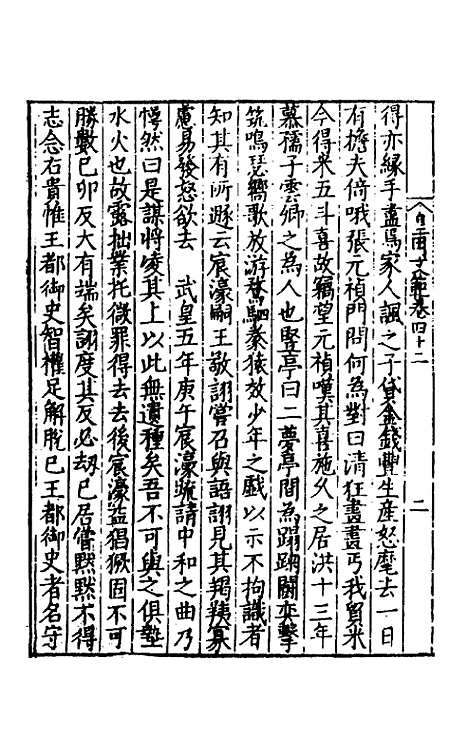 得亦緣手盡焉家人諷之子貸金錢豐生產怒麾去一日
有擔夫倚哦張元禎門問何為對曰清狂畫畫丐我貿米
今得米五斗喜故竊望元禎嘆其喜施久之居洪十三年
慕孺子雲卿之為人也豎亭曰二夢亭間為蹋踘鬭奕擊
筑鳴琵嚮歌放游 駟 猿效少年之戲以示不拘識者
知其有所遯云宸濠嗣王敬詡嘗召與語詡見其羯羠寡
慮易發怒欲去 武皇五年庚午宸濠疏請中和之曲乃
愕然曰是謀將凌其上以此無遺種矣吾不可與之俱墊
水火也故露拙業托微罪得去去後宸濠益猖獗固不可
勝數已卯反大有端矣詡度其反必劫已居嘗默默不得
志念右貴惟王都御史智權足解脫已王都御史者名守
文 卷四十二
二